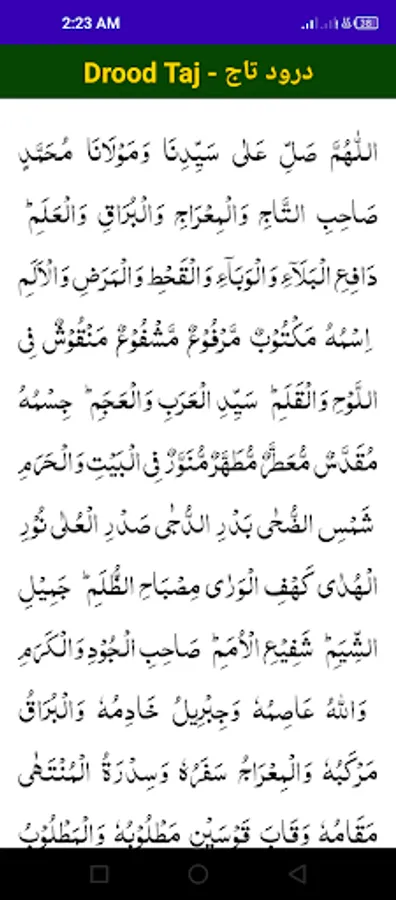 2:23 AM
38
Drood Taj - درود تاج
اللّٰهُمَّ صَلِّ عَلٰى سَيِّدِنَا وَمَوْلَانَا مُحَمَّدٍ
صَاحِبِ التَّاجِ وَالْمِعْرَاجِ وَالْبُرَاقِ وَالْعَلَمِ ؕ
دَافِعِ الْبَلَآءِ وَالْوَبَآءِ وَالْقَحْطِ وَالْمَرَضِ وَالْاَلَمِ
اِسْمُهٗ مَكْتُوْبٌ مَّرْفُوْعٌ مَّشْفُوْعٌ مَنْقُوْشٌ فِى
اللَّوْحِ وَالْقَلَمِ ؕ سَيِّدِ الْعَرَبِ وَالْعَجَمِ ؕ جِسْمُهٗ
مُقَدَّسٌ مُّعَطَّرٌ مُّطَهَّرٌ مُّنَوَّرٌ فِى الْبَيْتِ وَالْحَرَمِ
شَمْسِ الضُّحٰى بَدْرِ الدُّجٰى صَدْرِ الْعُلٰى نُوْرِ
الْهُدٰى كَهْفِ الْوَرٰى مِصْبَاحِ الظُّلَمِ ؕ جَمِيْلِ
الشِّيَمِ ؕ شَفِيْعِ الْاُمَمِ ؕ صَاحِبِ الْجُوْدِ وَالْكَرَمِ
وَاللّٰهُ عَاصِمُهٗ وَجِبْرِيْلُ خَادِمُهٗ وَالْبُرَاقُ
مَرْكَبُهٗ وَالْمِعْرَاجُ سَفَرُهٗ وَسِدْرَةُ الْمُنْتَهٰى
مَقَامُهٗ وَقَابَ قَوْسَيْنِ مَطْلُوْبُهٗ وَالْمَطْلُوْبُ